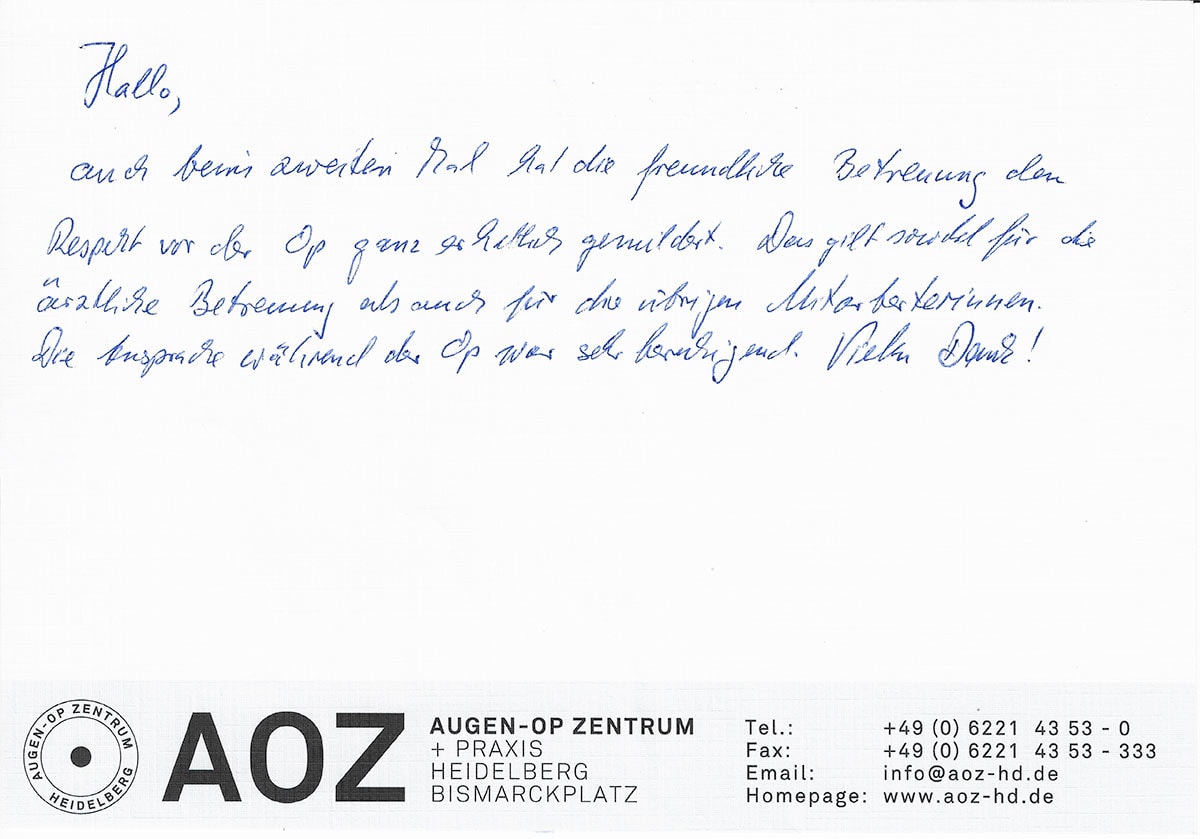 Hallo,
auch beim zweiten Mal hat die freundliche Betreuung den
Respekt vor der Op ganz erheblich gemildert. Das gilt sowohl für die
ärztliche Betreuung als auch für die übrigen Mitarbeiterinnen.
Die Ansprache während der Op war sehr beruhigend. Vielen Dank!
AUGEN-OP ZENTRUM
HEIDELBERG
AOZ
AUGEN-OP ZENTRUM
+ PRAXIS
HEIDELBERG
BISMARCKPLATZ
Tel.: +49 (0) 6221 43 53 - 0
Fax: +49 (0) 6221 43 53 - 333
Email: info@aoz-hd.de
Homepage: www.aoz-hd.de